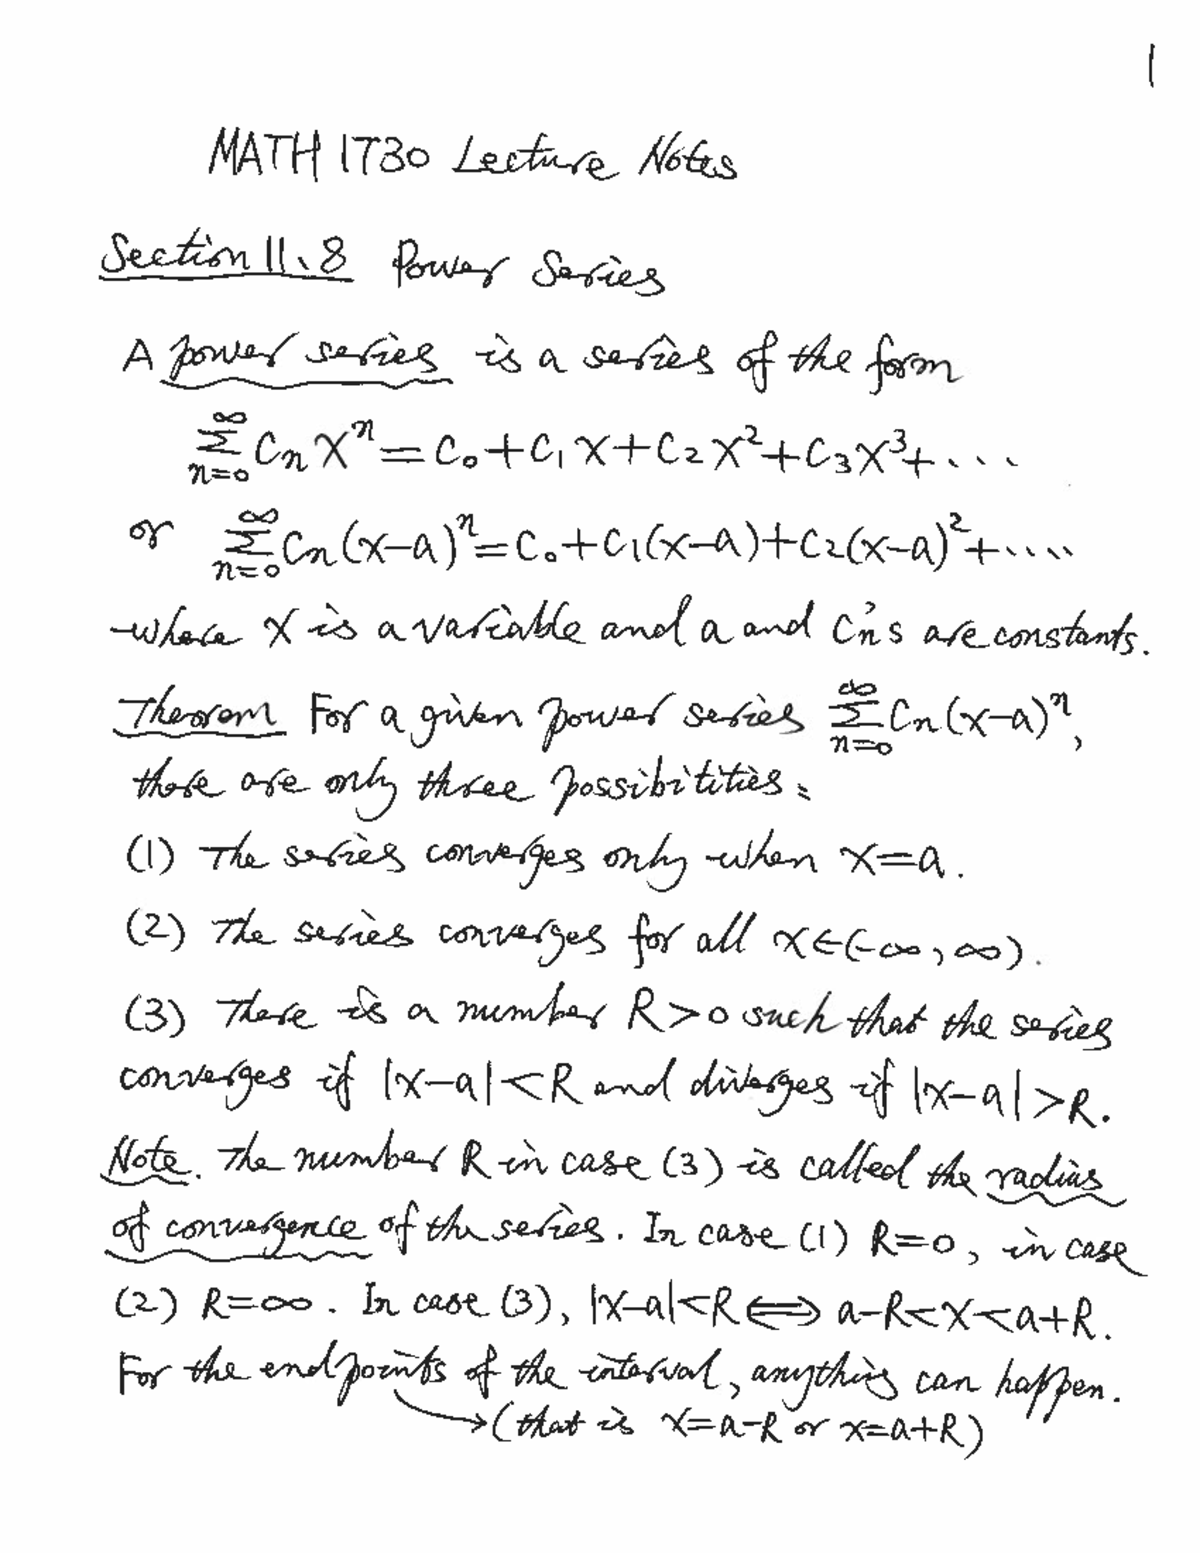 1
MATH 1730 Lecture Notes
Section 11.8 Power Series
A power series is a series of the form
∑_{n=0}^{∞} Cn x^n = C0 + C1 x + C2 x^2 + C3 x^3 + ....
or ∑_{n=0}^{∞} Cn (x-a)^n = C0 + C1(x-a) + C2(x-a)^2 + .....
where x is a variable and a and Cn's are constants.
Theorem For a given power series ∑_{n=0}^{∞} Cn (x-a)^n,
there are only three possibitities:
(1) The series converges only when x=a.
(2) The series converges for all x∈(-∞, ∞).
(3) There is a number R>0 such that the series
converges if |x-a|<R and diverges if |x-a|>R.
Note. The number R in case (3) is called the radius
of convergence of the series. In case (1) R=0, in case
(2) R=∞. In case (3), |x-a|<R ⟺ a-R<x<a+R.
For the endpoints of the interval, anything can happen.
→(that is x=a-R or x=a+R)